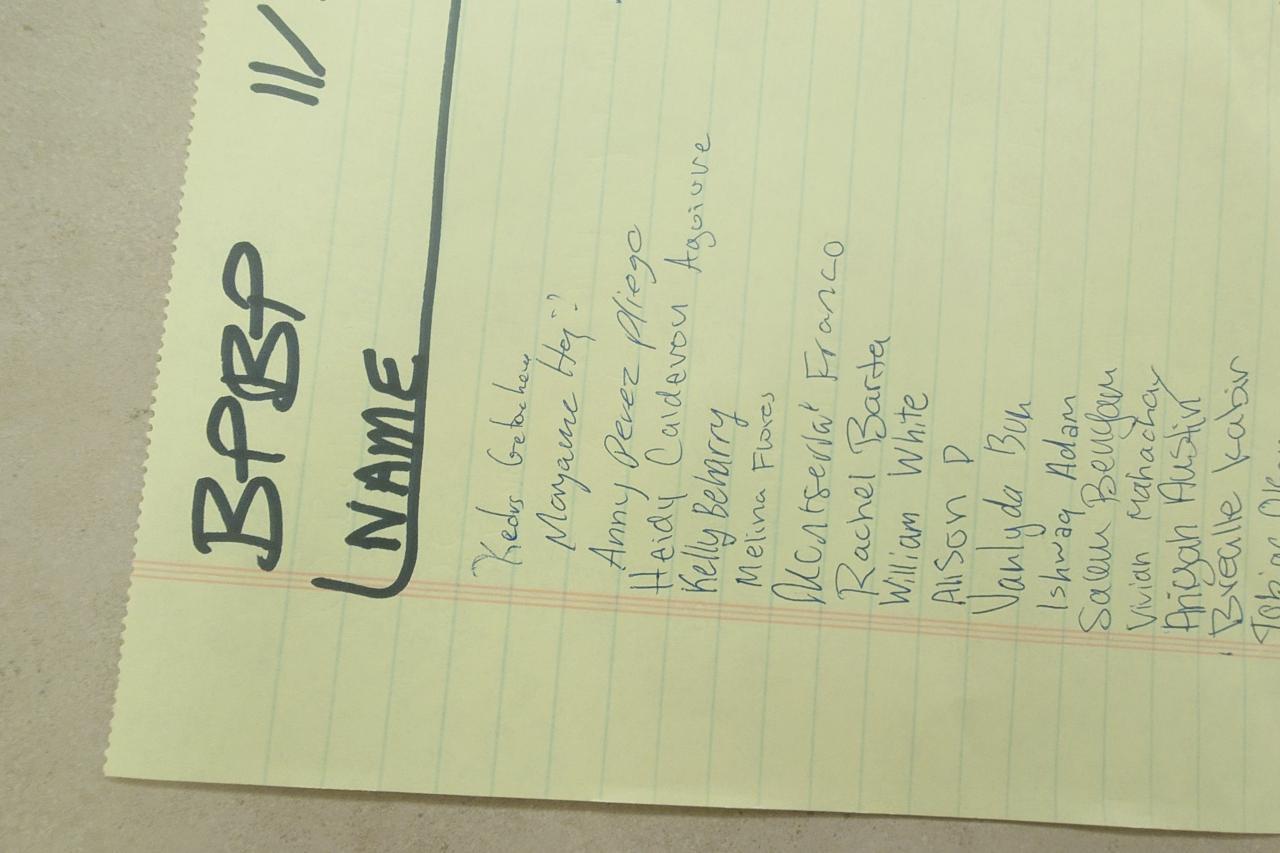 BPBP 11/
NAME
Kedus Getachew
Maryame Haji
Anny Perez Pliego
Heidy Calderon Aguirre
Kelly Beharry
Melina Flores
Montserrat Franco
Rachel Barta
William White
Alison P
Vanlyda Bun
Ishwaq Adam
Salem
Vivian Mahachay
Austin
Brealle Kabir